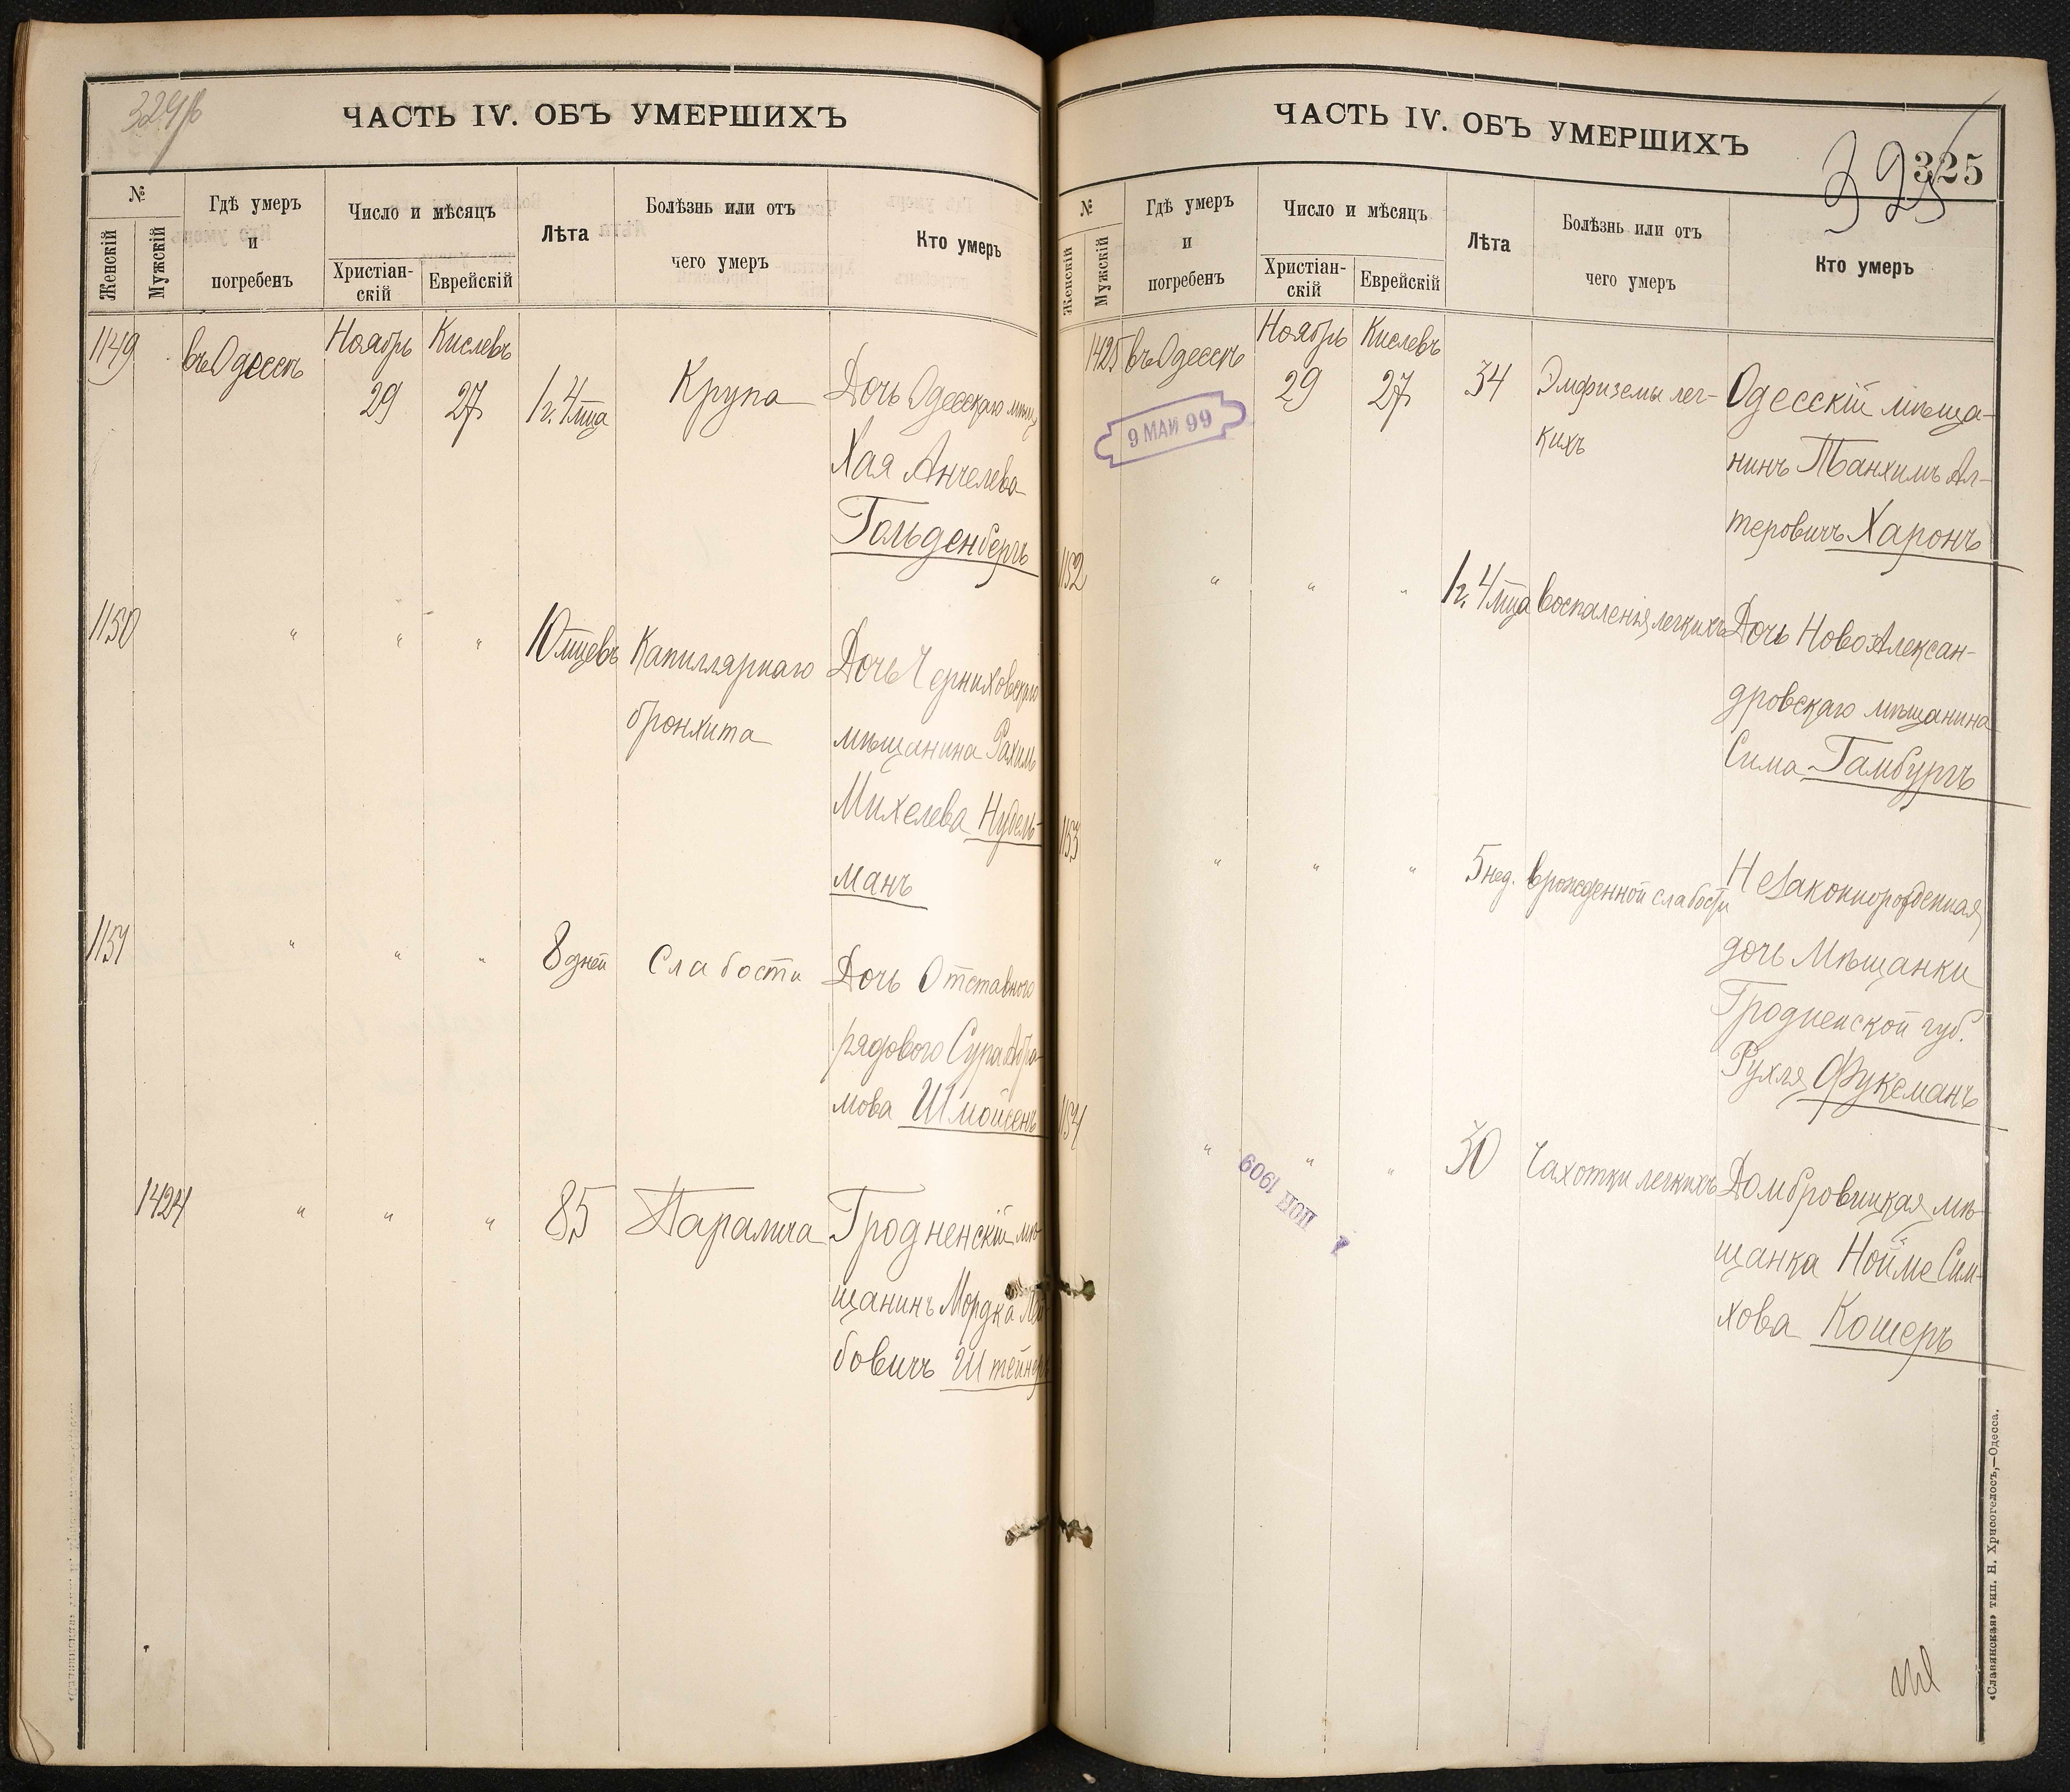 324об
ЧАСТЬ IV. ОБЪ УМЕРШИХЪ
№
Женскій
Мужскій
Гдѣ умеръ
и
погребенъ
Число и мѣсяцъ
Христіан-
скій
Еврейскій
Лѣта
Болѣзнь или отъ
чего умеръ
Кто умеръ
1149 въ Одессѣ Ноябрь 29 Кислевъ 27 1 г. 4 м-ца Крупа Дочь Одесскаго мѣщ.
Хая Анчелева
Гольденбергъ
1150 " " " 10 м-цевъ Капиллярнаго Дочь Черниховскаго
бронхита мѣщанина Рахиль
Михелева Нудель-
манъ
1151 " " " 8 дней Слабости Дочь Отставного
рядового Сура Абра-
мова Шмойсенъ
1424 " " " 85 Паралича Гродненскій мѣ-
щанинъ Мордка Лей-
бовичъ Штейнъ
ЧАСТЬ IV. ОБЪ УМЕРШИХЪ
325
325
№
Женскій
Мужскій
Гдѣ умеръ
и
погребенъ
Число и мѣсяцъ
Христіан-
скій
Еврейскій
Лѣта
Болѣзнь или отъ
чего умеръ
Кто умеръ
1425 въ Одессѣ Ноябрь 29 Кислевъ 27 34 Эмфиземы лег- Одесскій мѣща-
9 МАЙ 99
кихъ нинъ Танхимъ Ал-
теровичъ Харонъ
1152 " " " 1 г. 4 м-ца воспаленія легкихъ Дочь Ново-Алексан-
дровскаго мѣщанина
Сима Гамбургъ
1153 " " " 5 нед. врожденной слабости Незаконнорожденная
дочь Мѣщанки
Гродненской губ.
Рухля Фуксманъ
1154 " " " 30 Чахотки легкихъ Домбровицкая мѣ-
1909
щанка Нойме Сим-
хова Кошеръ
«Славянская» тип. Н. Хрисогелосъ,—Одесса.